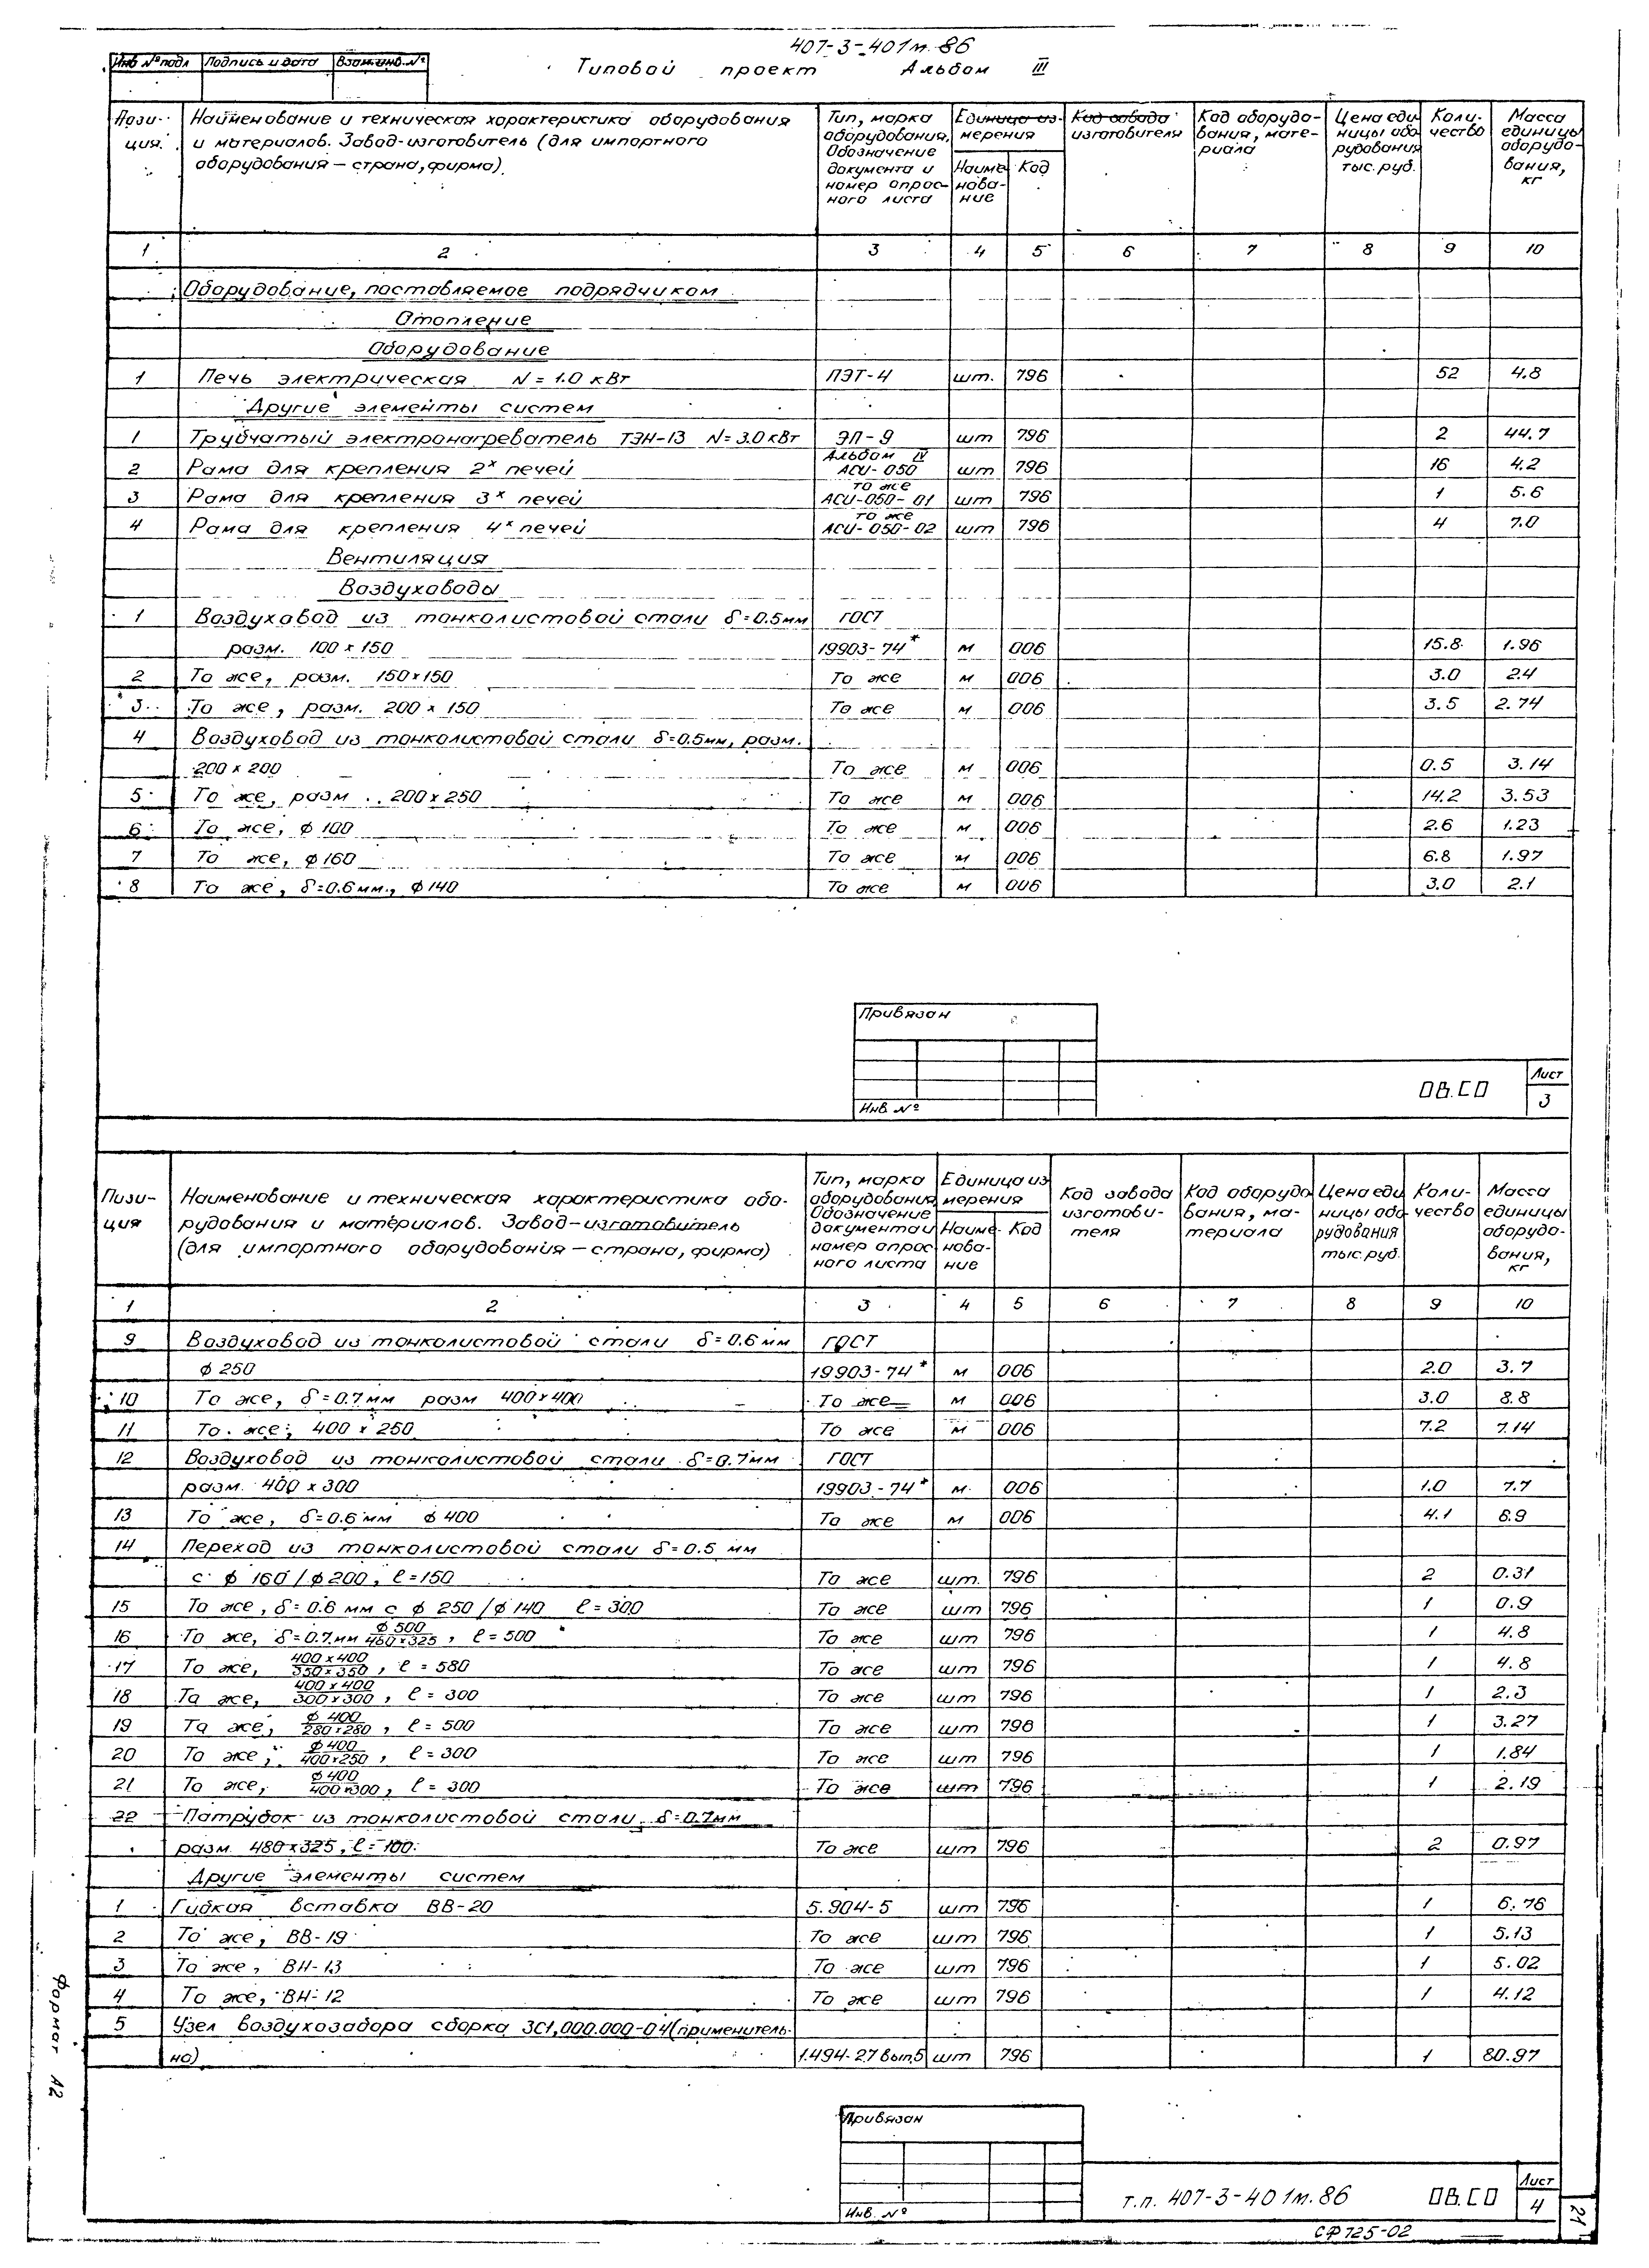 407-3-401м.86
Типовой проект Альбом III
Инв №подл Подпись и дата Взам.инв.№
Пози- Наименование и техническая характеристика оборудования Тип, марка Единица из- Код завода Код оборудо- Цена еди Коли- Масса
ция. и материалов. Завод-изготовитель (для импортного оборудования, мерения изготовителя вания, мате- ницы обо чество единицы
оборудования – страна, фирма). Обозначение риала рудования оборудо-
документа и Наиме Код тыс.руб. вания,
номер опрос- нова- кг
ного листа ние
1 2 3 4 5 6 7 8 9 10
Оборудование, поставляемое подрядчиком
Отопление
Оборудование
1 Печь электрическая N = 1.0 кВт ПЭТ-4 шт. 796 52 4.8
Другие элементы систем
1 Трубчатый электронагреватель ТЭН-13 N = 3.0 кВт ЭП-9 шт 796 2 44.7
Альбом IV
2 Рама для крепления 2х печей АСИ-050 шт 796 16 4.2
то же
3 Рама для крепления 3х печей АСИ-050-01 шт 796 1 5.6
то же
4 Рама для крепления 4х печей АСИ-050-02 шт 796 4 7.0
Вентиляция
Воздуховоды
1 Воздуховод из тонколистовой стали δ=0.5мм ГОСТ
разм. 100 х 150 19903-74* м 006 15.8 1.96
2 То же, разм. 150х150 То же м 006 3.0 2.4
3 То же, разм. 200 х 150 То же м 006 3.5 2.74
4 Воздуховод из тонколистовой стали δ=0.5мм, разм.
200 х 200 То же м 006 0.5 3.14
5 То же, разм. 200х250 То же м 006 14.2 3.53
6 То же, ф 100 То же м 006 2.6 1.23
7 То же, ф 160 То же м 006 6.8 1.97
8 То же, δ=0.6мм., ф 140 То же м 006 3.0 2.1
Привязан
Инв. №
ОВ.СО
Лист
3
Пизи- Наименование и техническая характеристика обо- Тип, марка Единица из Код завода Код оборудо Цена еди Коли- Масса
ция рудования и материалов. Завод-изготовитель оборудования, мерения изготови- вания, ма- ницы обо- чество единицы
(для импортного оборудования – страна, фирма) Обозначение теля териала рудования оборудо-
документа и Наиме- Код тыс.руб. вания,
номер опрос нова- кг
ного листа ние
1 2 3 4 5 6 7 8 9 10
9 Воздуховод из тонколистовой стали δ=0.6мм ГОСТ
ф 250 19903-74* м 006 2.0 3.7
10 То же, δ=0.7мм разм 400х400 То же м 006 3.0 8.8
11 То же; 400 х 250 То же м 006 7.2 7.14
12 Воздуховод из тонколистовой стали δ=0.7мм ГОСТ
разм. 400 х 300 19903-74* м 006 1.0 7.7
13 То же, δ=0.6мм ф 400 То же м 006 4.1 6.9
14 Переход из тонколистовой стали δ=0.5 мм
с ф 160/ф200, ℓ=150 То же шт. 796 2 0.31
15 То же, δ=0.6 мм с ф 250/ф140 ℓ=300 То же шт 796 1 0.9
16 То же, δ=0.7мм ф500/480х325, ℓ=500 То же шт 796 1 4.8
17 То же, 400х400/350х350, ℓ = 580 То же шт 796 1 4.8
18 То же, 400х400/300х300, ℓ = 300 То же шт 796 1 2.3
19 То же, ф 400/280х280, ℓ = 500 То же шт 796 1 3.27
20 То же, ф400/400х250, ℓ = 300 То же шт 796 1 1.84
21 То же, ф400/400х300, ℓ = 300 То же шт 796 1 2.19
22 Патрубок из тонколистовой стали δ=0.7мм
разм 480х325, ℓ=100. То же шт 796 2 0.97
Другие элементы систем
1 Гибкая вставка ВВ-20 5.904-5 шт 796 1 6.76
2 То же, ВВ-19 То же шт 796 1 5.13
3 То же, ВН-13 То же шт 796 1 5.02
4 То же, ВН-12 То же шт 796 1 4.12
5 Узел воздухозабора сборка ЗС1,000.000-04(применитель-
но) 1.494-27 вып.5 шт 796 1 80.97
Привязан
Инв. №
т.п. 407-3-401м.86 ОВ.СО
Лист
4
21
СФ725-02
Формат А2